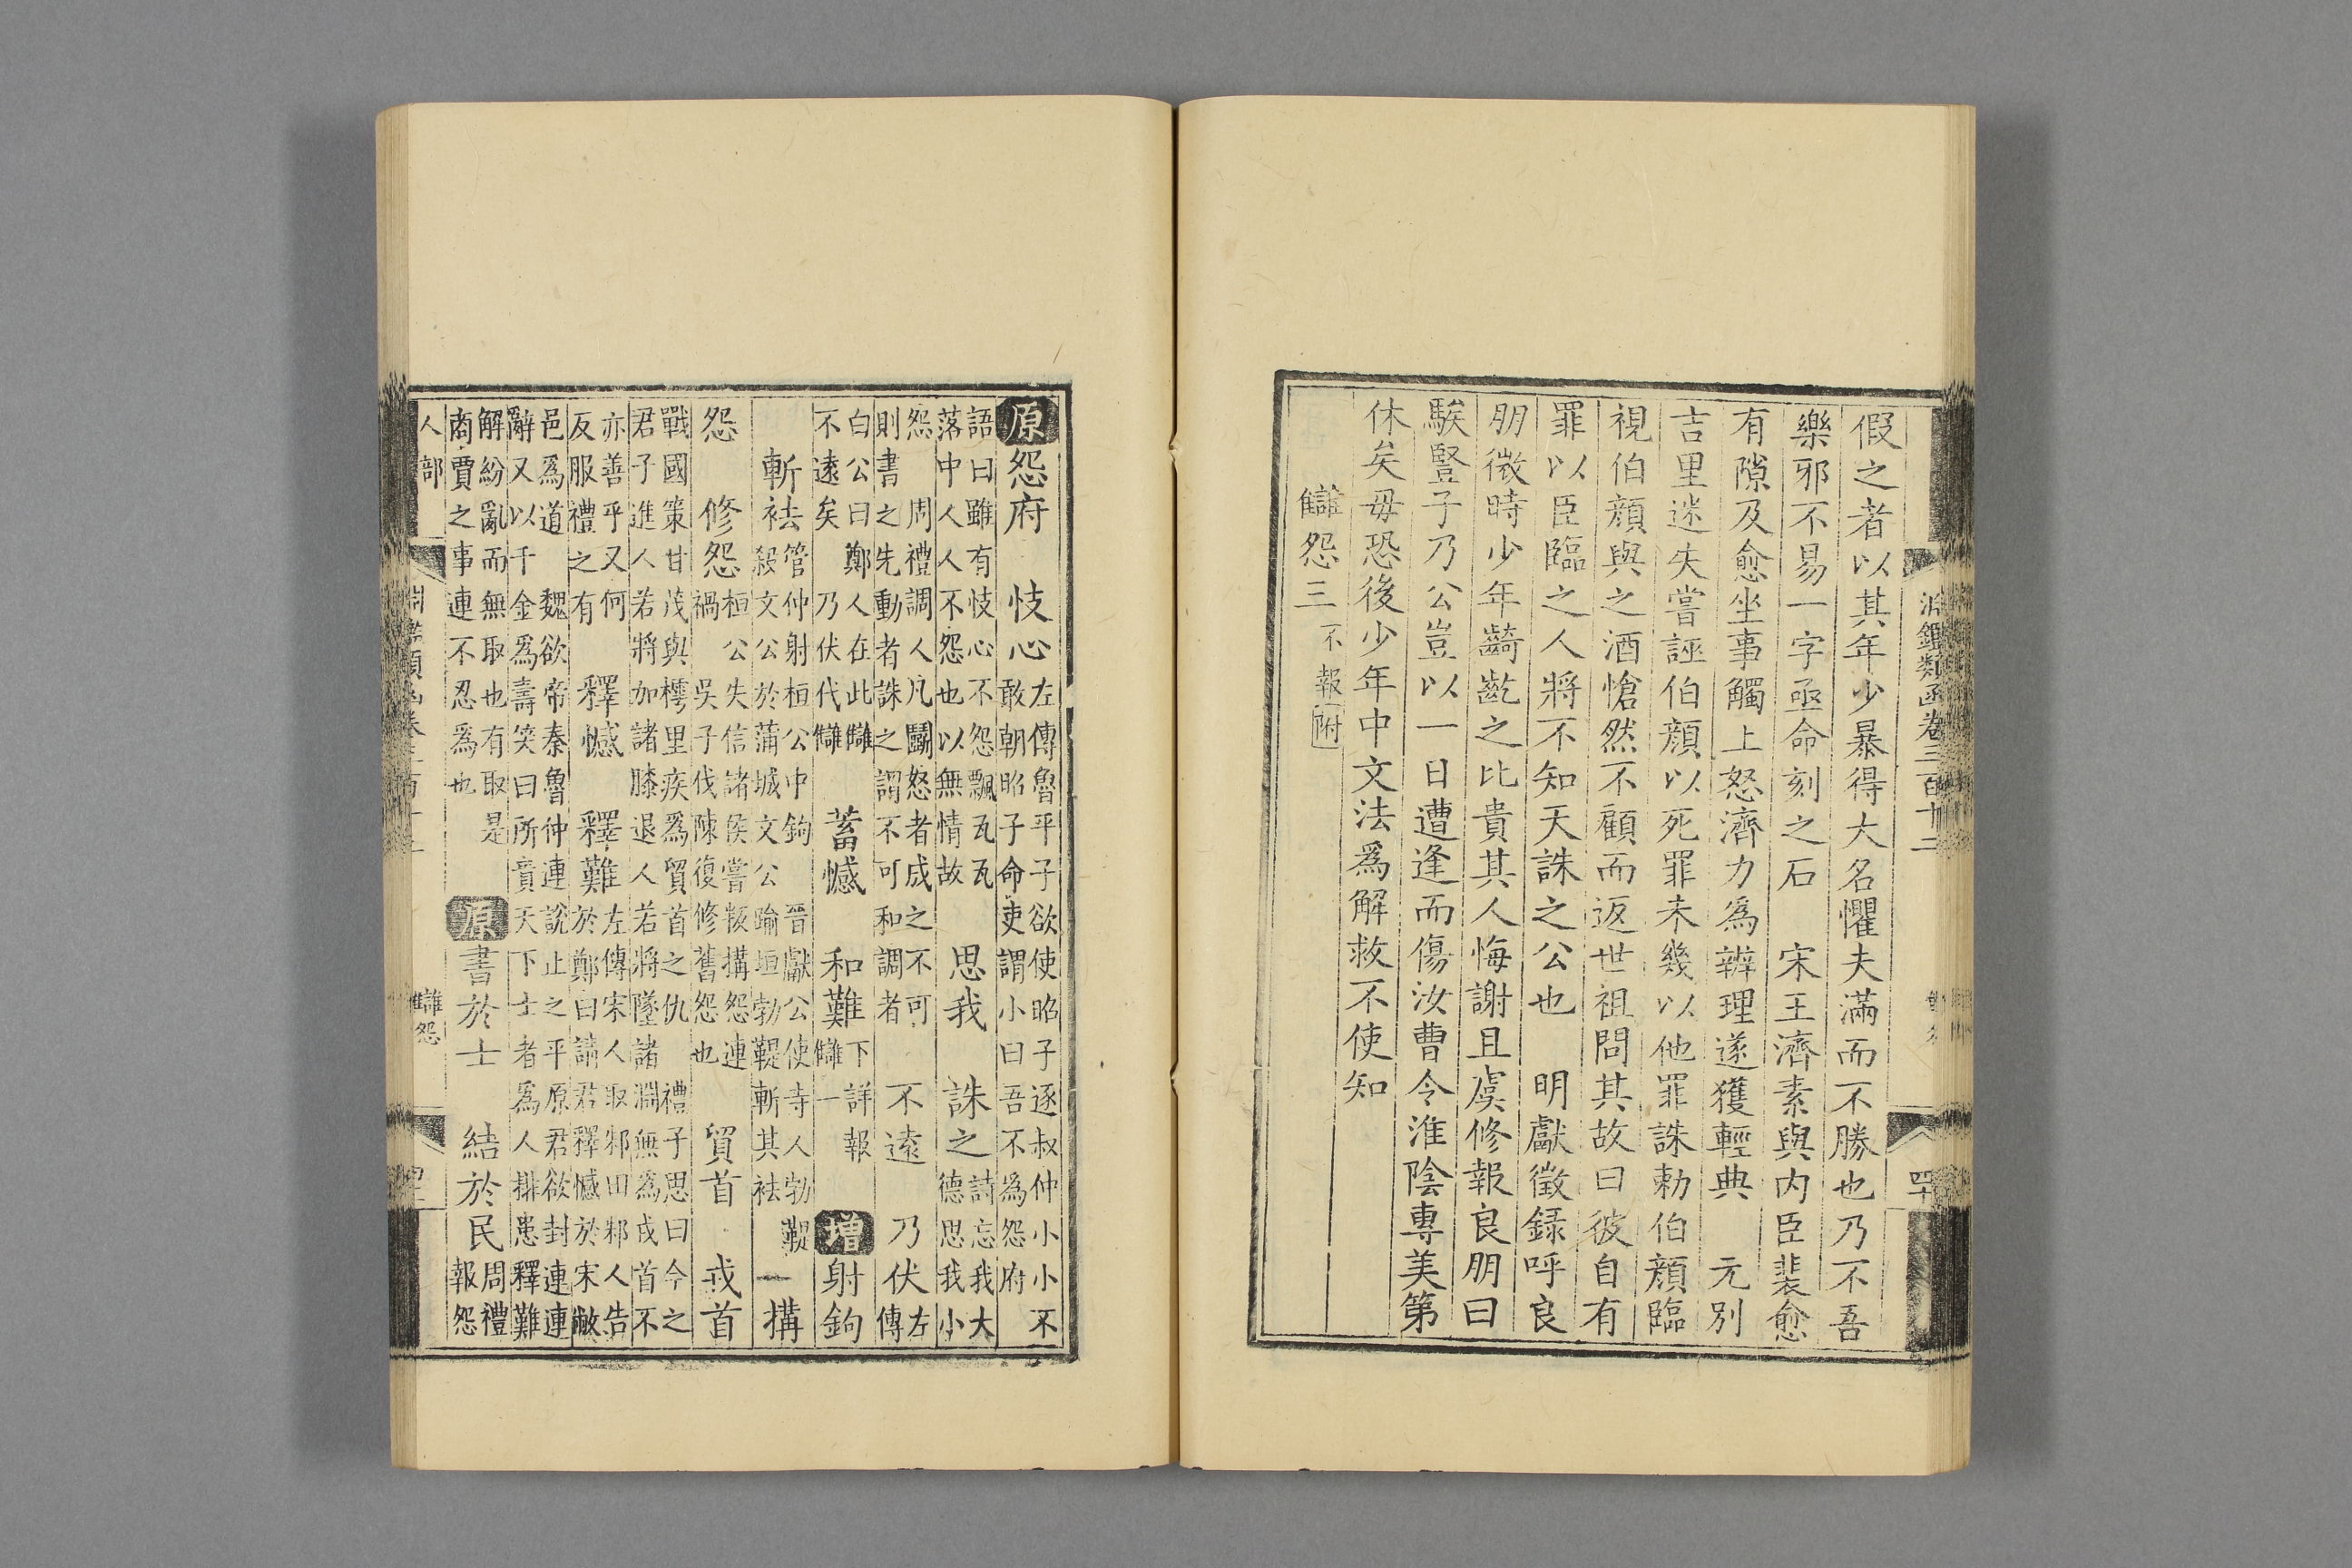 淵鑑類函卷三百十二
假之者以其年少暴得大名懼夫滿而不勝也乃不吾
樂邪不易一字亟命刻之石　宋王濟素與內臣裴愈
有隙及愈坐事觸上怒濟力爲辨理遂獲輕典　元別
吉里迷失嘗誣伯顏以死罪未幾以他罪誅勅伯顏臨
視伯顏與之酒愴然不顧而返世祖問其故曰彼自有
罪以臣臨之人將不知天誅之公也　明獻徵錄呼良
朋微時少年齮齕之比貴其人悔謝且虞修報良朋曰
騃豎子乃公豈以一日遭逢而傷汝曹令淮陰專美第
休矣毋恐後少年中文法爲解救不使知
讎怨三不報附
原怨府　忮心左傳魯平子欲使昭子逐叔仲小小不
敢朝昭子命吏謂小曰吾不爲怨府
語曰雖有忮心不怨飄瓦瓦
落中人人不怨也以無情故　思我　誅之詩忘我大
德思我小
怨　周禮調人凡鬭怒者成之不可
則書之先動者誅之謂不可和調者　不遠　乃伏左
傳
白公曰鄭人在此讎
不遠矣　乃伏代讎　蓄憾　和難下詳報
讎一　增射鉤
斬袪管仲射桓公中鉤　晉獻公使寺人勃鞮
殺文公於蒲城文公踰垣勃鞮斬其袪　一搆
怨　修怨桓公失信諸侯嘗叛搆怨連
禍　吳子伐陳復修舊怨也　貿首　戎首
戰國策甘茂與樗里疾爲貿首之仇　禮子思曰今之
君子進人若將加諸膝退人若將墜諸淵無爲戎首不
亦善乎又何
反服禮之有　釋憾　釋難左傳宋人取邾田邾人告
於鄭曰請君釋憾於宋敝
邑爲道　魏欲帝秦魯仲連說止之平原君欲封連連
辭又以千金爲壽笑曰所貴天下士者爲人排患釋難
解紛亂而無取也有取是
商賈之事連不忍爲也　原書於士　結於民周禮
報怨
人部　讎怨